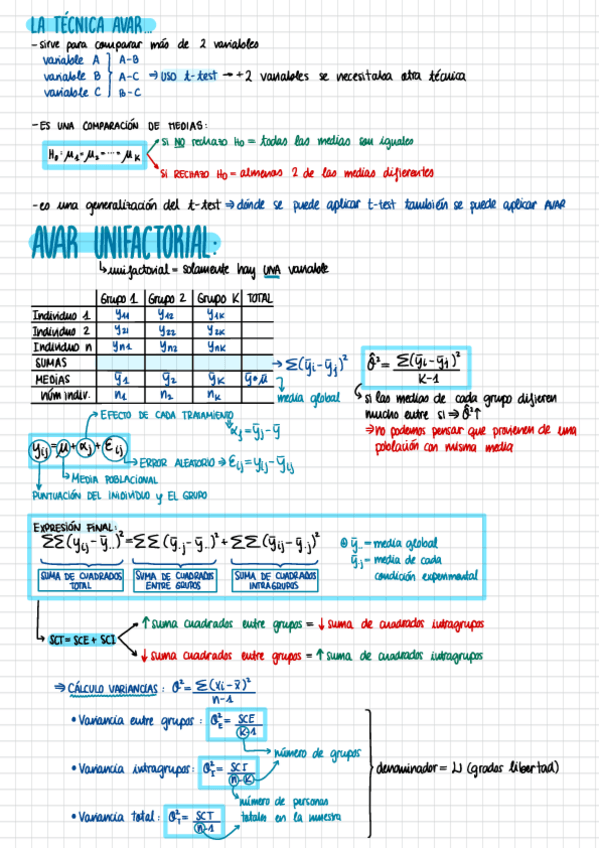 LA TÉCNICA AVAR...
- sirve para comparar más de 2 variables
variable A A-B
variable B A-C ⇒ USO t-test → +2 variables se necesitaba otra técnica
variable C B-C
- ES UNA COMPARACIÓN DE MEDIAS:
si NO rechazo H₀ = todas las medias son iguales
H₀: μ₁ = μ₂ = ... = μK
si RECHAZO H₀ = almenos 2 de las medias diferentes
- es una generalización del t-test ⇒ dónde se puede aplicar t-test también se puede aplicar AVAR
AVAR UNIFACTORIAL:
↳ unifactorial = solamente hay UNA variable
Grupo 1 Grupo 2 Grupo K TOTAL
Individuo 1 y₁₁ y₁₂ y₁K
Individuo 2 y₂₁ y₂₂ y₂K
Individuo n yn₁ yn₂ ynK
SUMAS → Σ(ȳi - ȳj)²
MEDIAS ȳ₁ ȳ₂ ȳK ȳ o μ
núm indiv. n₁ n₂ nK media global
σ̂² = Σ(ȳi - ȳj)² / K-1
↳ si las medias de cada grupo difieren
mucho entre si ⇒ σ̂² ↑
⇒ no podemos pensar que provienen de una
población con misma media
EFECTO DE CADA TRATAMIENTO
αj = ȳj - ȳ
yij = μ + αj + εij
ERROR ALEATORIO → εij = yij - ȳij
MEDIA POBLACIONAL
PUNTUACIÓN DEL INDIVIDUO y EL GRUPO
EXPRESIÓN FINAL:
ΣΣ(yij - ȳ..)² = ΣΣ(ȳ.j - ȳ..)² + ΣΣ(ȳij - ȳ.j)²
ȳ.. = media global
ȳ.j = media de cada
condición experimental
SUMA DE CUADRADOS TOTAL
SUMA DE CUADRADOS ENTRE GRUPOS
SUMA DE CUADRADOS INTRAGRUPOS
↑ suma cuadrados entre grupos = ↓ suma de cuadrados intragrupos
SCT = SCE + SCI
↓ suma cuadrados entre grupos = ↑ suma de cuadrados intragrupos
⇒ CÁLCULO VARIANCIAS: σ² = Σ(xi - x̄)² / n-1
• Variancia entre grupos: σ²E = SCE / K-1
número de grupos
• Variancia intragrupos: σ²I = SCI / n-K
denominador = ν (grados libertad)
número de personas
totales en la muestra
• Variancia total: σ²T = SCT / n-1